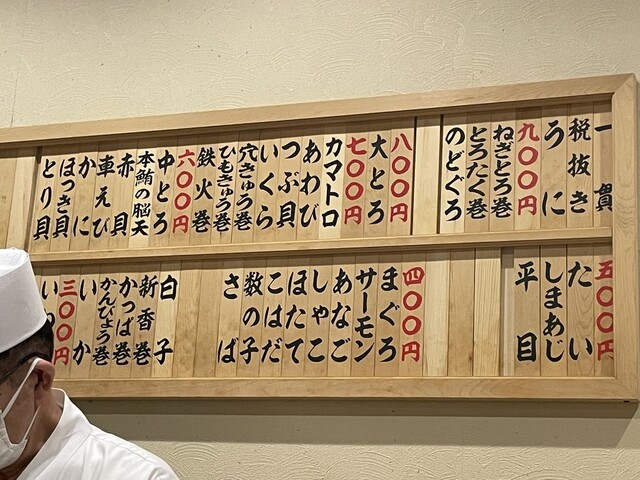 一貫
税抜き
うに
九〇〇円
ねぎとろ巻
とろたく巻
のどぐろ
八〇〇円
大とろ
七〇〇円
カマトロ
あわび
つぶ貝
いくら
穴きゅう巻
ひもきゅう巻
鉄火巻
六〇〇円
中とろ
本鮪の脳天
赤貝
車えび
かに
ほっき貝
とり貝
五〇〇円
たい
しまあじ
平目
四〇〇円
まぐろ
サーモン
あなご
しゃこ
ほたて
こはだ
数の子
さば
白子
新香巻
かっぱ巻
かんぴょう巻
いか
三〇〇円